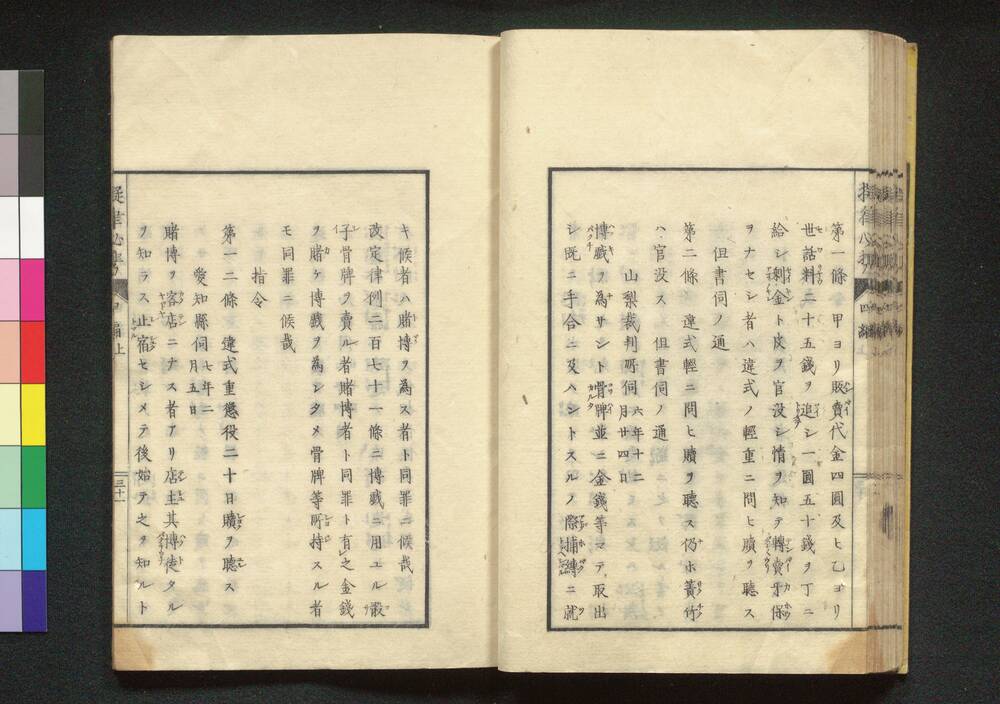 第一條 甲ヨリ販賣代金四圓及ヒ乙ヨリ
世話料二十五錢ヲ追シ一圓五十錢ヲ丁ニ
給シ剰金ト皮ヲ官没シ情ヲ知テ轉賣牙保
ヲナセシ者ハ違式ノ輕重ニ問ヒ贖ヲ聽ス
但書伺ノ通
第二條 違式輕ニ問ヒ贖ヲ聽ス仍ホ簀竹
ハ官没ス但書伺ノ通
山梨裁判所伺 六年十二月廿四日
博戯ヲ為サント骨牌並ニ金錢等マテ取出
シ既ニ手合ニ及ハントスルノ際捕縛ニ就
キ候者ハ賭博ヲ為ス者ト同罪ニ候哉
改定律例二百七十一條ニ博戯ニ用エル骰
子骨牌ヲ賣ル者賭博者ト同罪ト有之金錢
ヲ賭ケ博戯ヲ為シタメ骨牌等所持スル者
モ同罪ニ候哉
指令
第一二條 違式重懲役二十日贖ヲ聽ス
愛知縣伺 七年二月五日
賭博ヲ客店ニナス者アリ店主其博徒タル
ヲ知ラス止宿セシメテ後始テ之ヲ知ルト
四編上
三十一